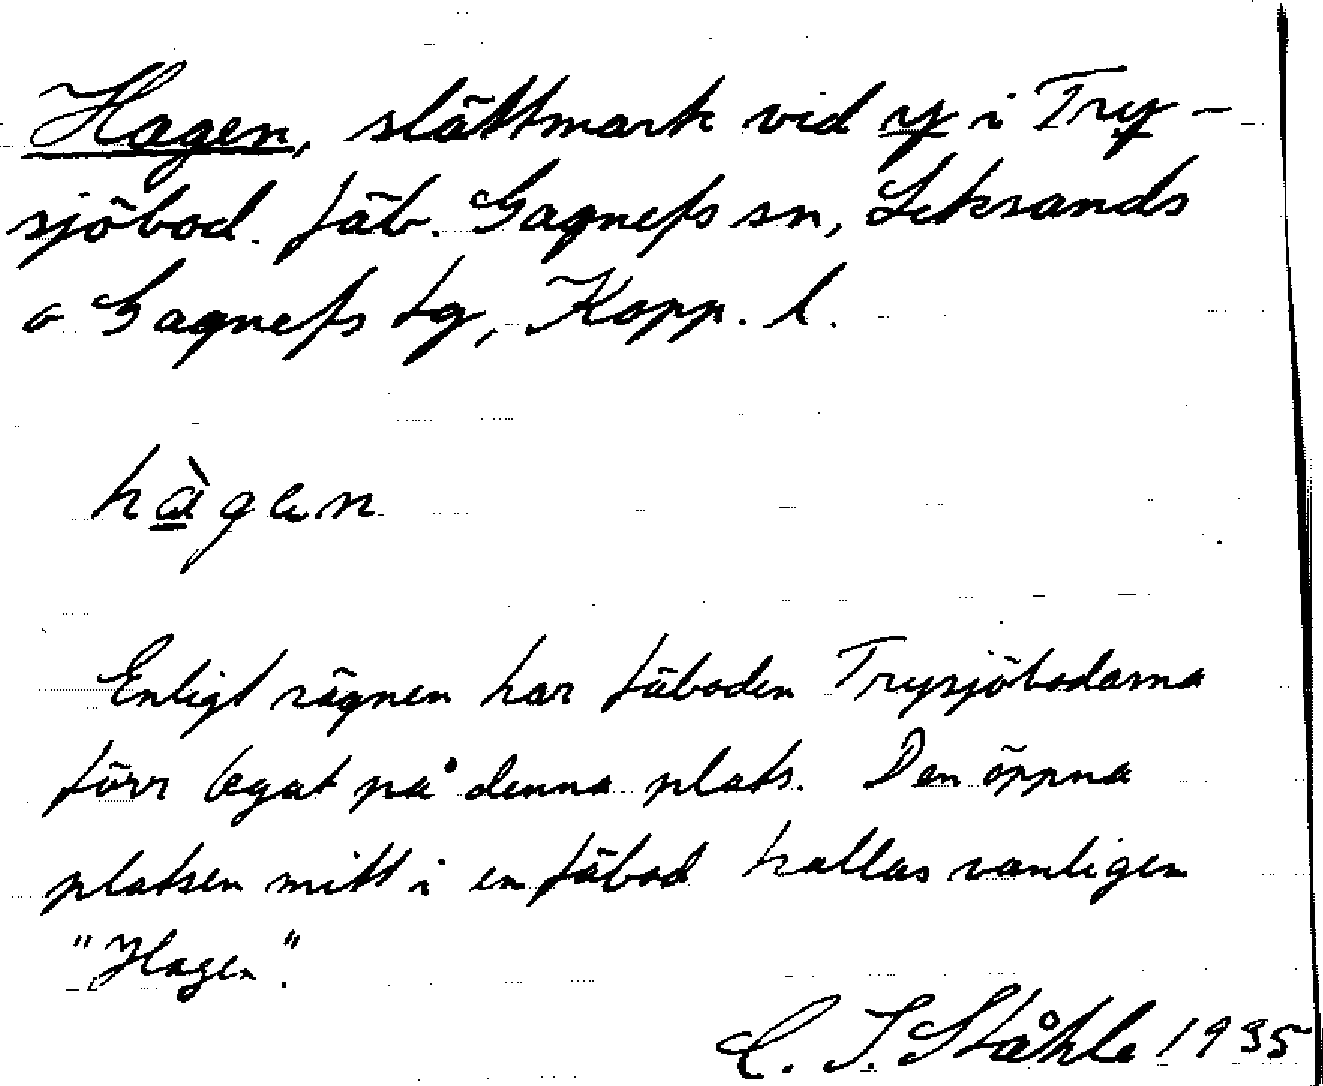 Hagen, slättmark vid y i Try-
sjöbod. fäb. Gagnefs sn, Leksands
o Gagnefs tg, Kopp. l.
hàgen
Enligt sägnen har fäboden Trysjöbodarna
förr legat på denna plats. Den öppna
platsen mitt i en fäbod kallas vanligen
"Hagen".
C. I. Ståhle 1935